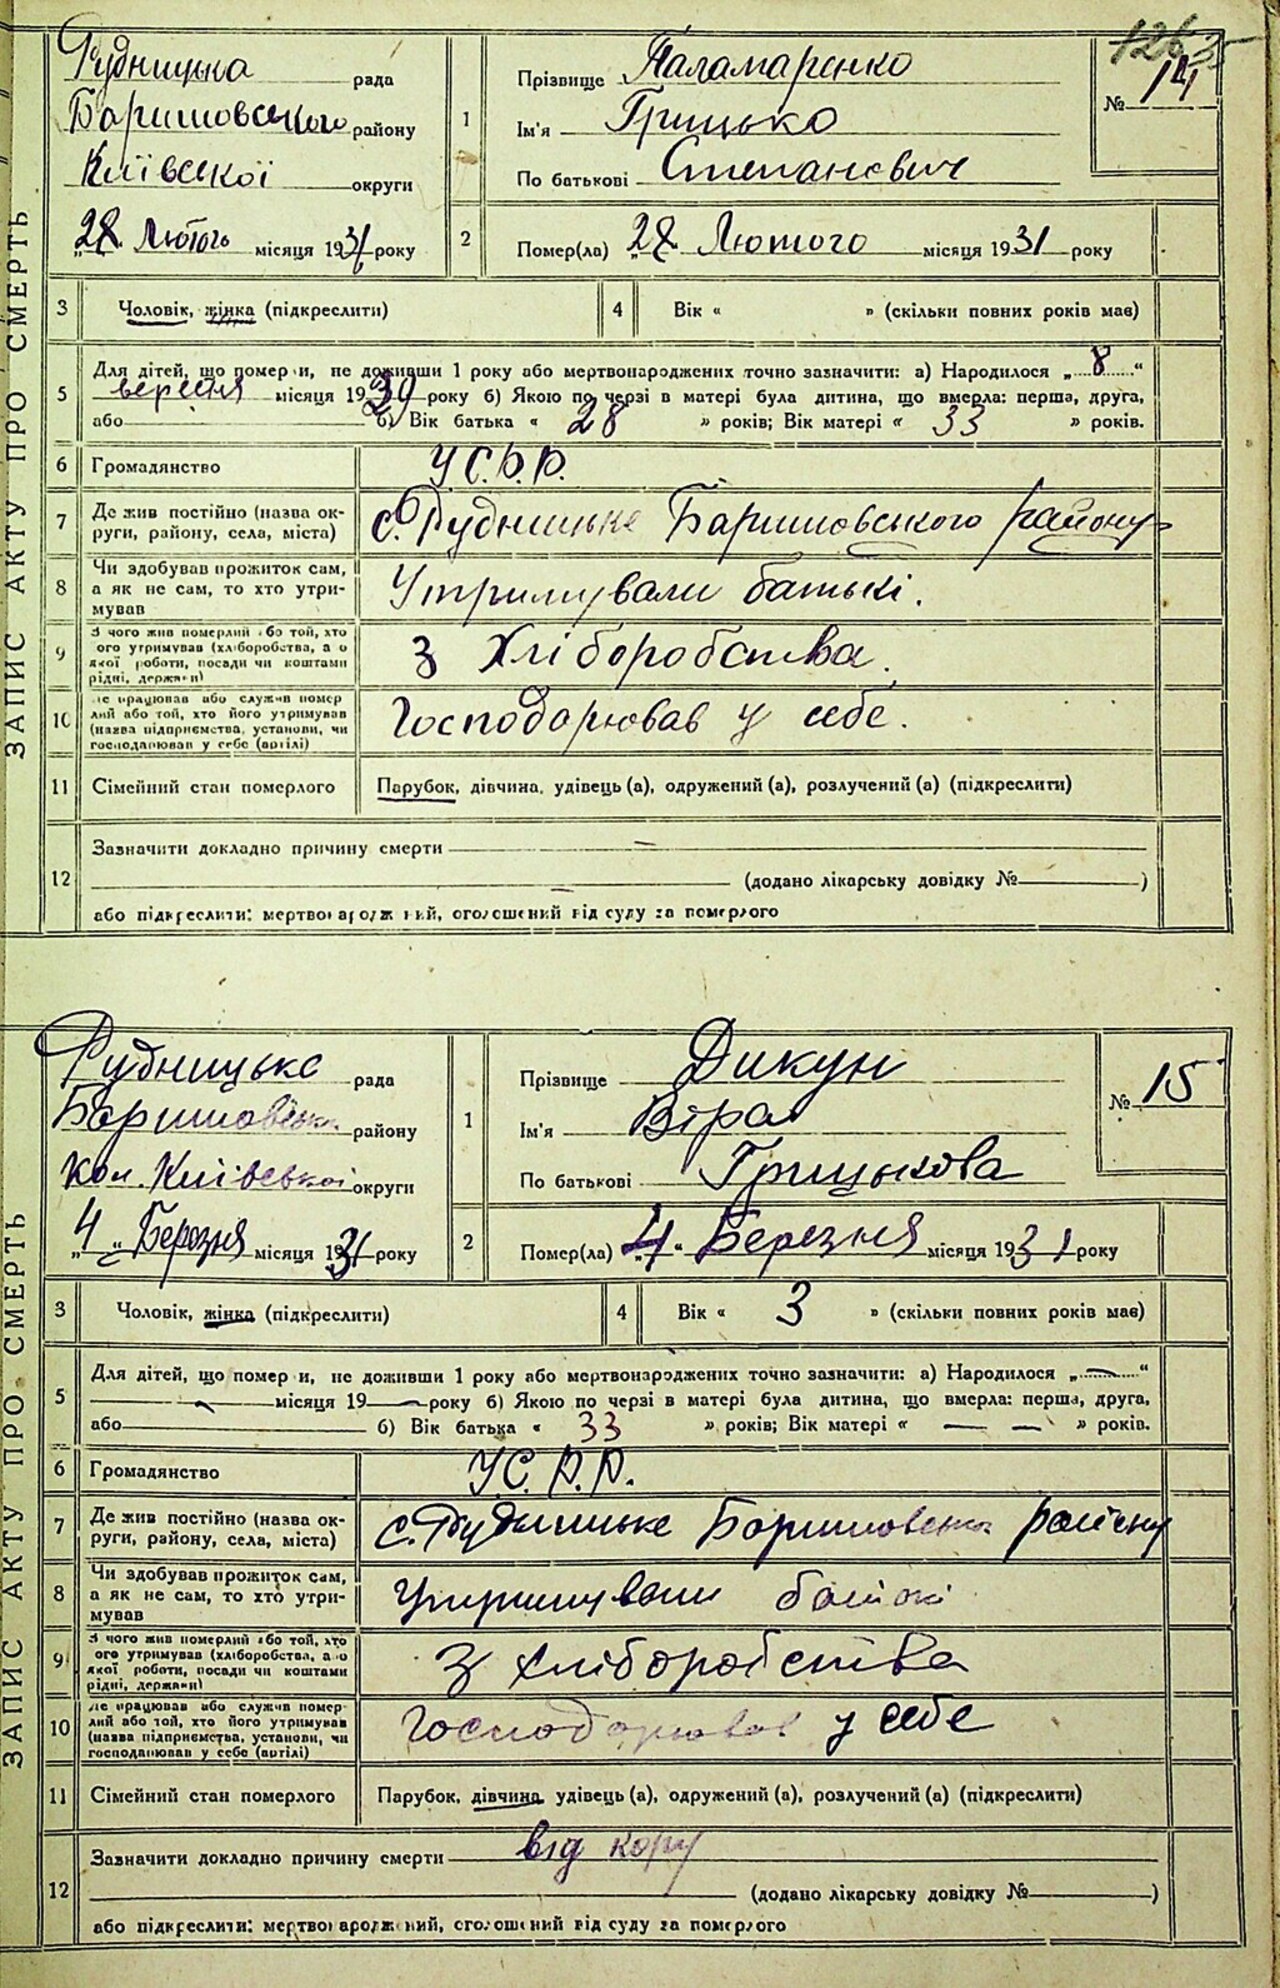 ЗАПИС АКТУ ПРО СМЕРТЬ
Рудницька рада
Баришовського району
Київської округи
„28 Лютого місяця 1931 року
1
Прізвище Паламаренко
Ім'я Грицько
По батькові Степанович
№ 14
2 Помер(ла) „28 Лютого місяця 1931 року
3 Чоловік, жінка (підкреслити)
4 Вік « » (скільки повних років має)
5
Для дітей, що померли, не доживши 1 року або мертвонароджених точно зазначити: а) Народилося „8“
вересня місяця 1930 року б) Якою по черзі в матері була дитина, що вмерла: перша, друга,
або б) Вік батька « 28 » років; Вік матері « 33 » років.
6 Громадянство У.С.Р.Р.
7 Де жив постійно (назва ок-
руги, району, села, міста) с. Рудницьке Баришовського району
8 Чи здобував прожиток сам,
а як не сам, то хто утри-
мував Утримували батькі.
9 З чого жив померлий або той, хто
його утримував (хліборобства, а о
якої роботи, посади чи коштами
рідні, держави) З Хліборобства.
10 Де працював або служив помер
лий або той, хто його утримував
(назва підприємства, установи, чи
господарював у себе (артілі) Господорював у себе.
11 Сімейний стан померлого Парубок, дівчина, удівець (а), одружений (а), розлучений (а) (підкреслити)
12
Зазначити докладно причину смерти —
— (додано лікарську довідку № )
або підкреслити: мертвонароджений, оголошений від суду за померлого
ЗАПИС АКТУ ПРО СМЕРТЬ
Рудницьке рада
Баришовськ. району
кол. Київської округи
„4“ Березня місяця 1931 року
1
Прізвище Дикун
Ім'я Віра
По батькові Грицькова
№ 15
2 Помер(ла) „4“ Березня місяця 1931 року
3 Чоловік, жінка (підкреслити)
4 Вік « 3 » (скільки повних років має)
5
Для дітей, що померли, не доживши 1 року або мертвонароджених точно зазначити: а) Народилося „—“
— місяця 19— року б) Якою по черзі в матері була дитина, що вмерла: перша, друга,
або б) Вік батька « 33 » років; Вік матері « — — » років.
6 Громадянство У.С.Р.Р.
7 Де жив постійно (назва ок-
руги, району, села, міста) с. Рудницьке Баришовськ. району
8 Чи здобував прожиток сам,
а як не сам, то хто утри-
мував Утримували батькі
9 З чого жив померлий або той, хто
його утримував (хліборобства, а о
якої роботи, посади чи коштами
рідні, держави) З хліборобства
10 Де працював або служив помер-
лий або той, хто його утримував
(назва підприємства, установи, чи
господарював у себе (артілі) Господорював у себе
11 Сімейний стан померлого Парубок, дівчина, удівець (а), одружений (а), розлучений (а) (підкреслити)
12
Зазначити докладно причину смерти від кору
(додано лікарську довідку № )
або підкреслити: мертвонароджений, оголошений від суду за померлого